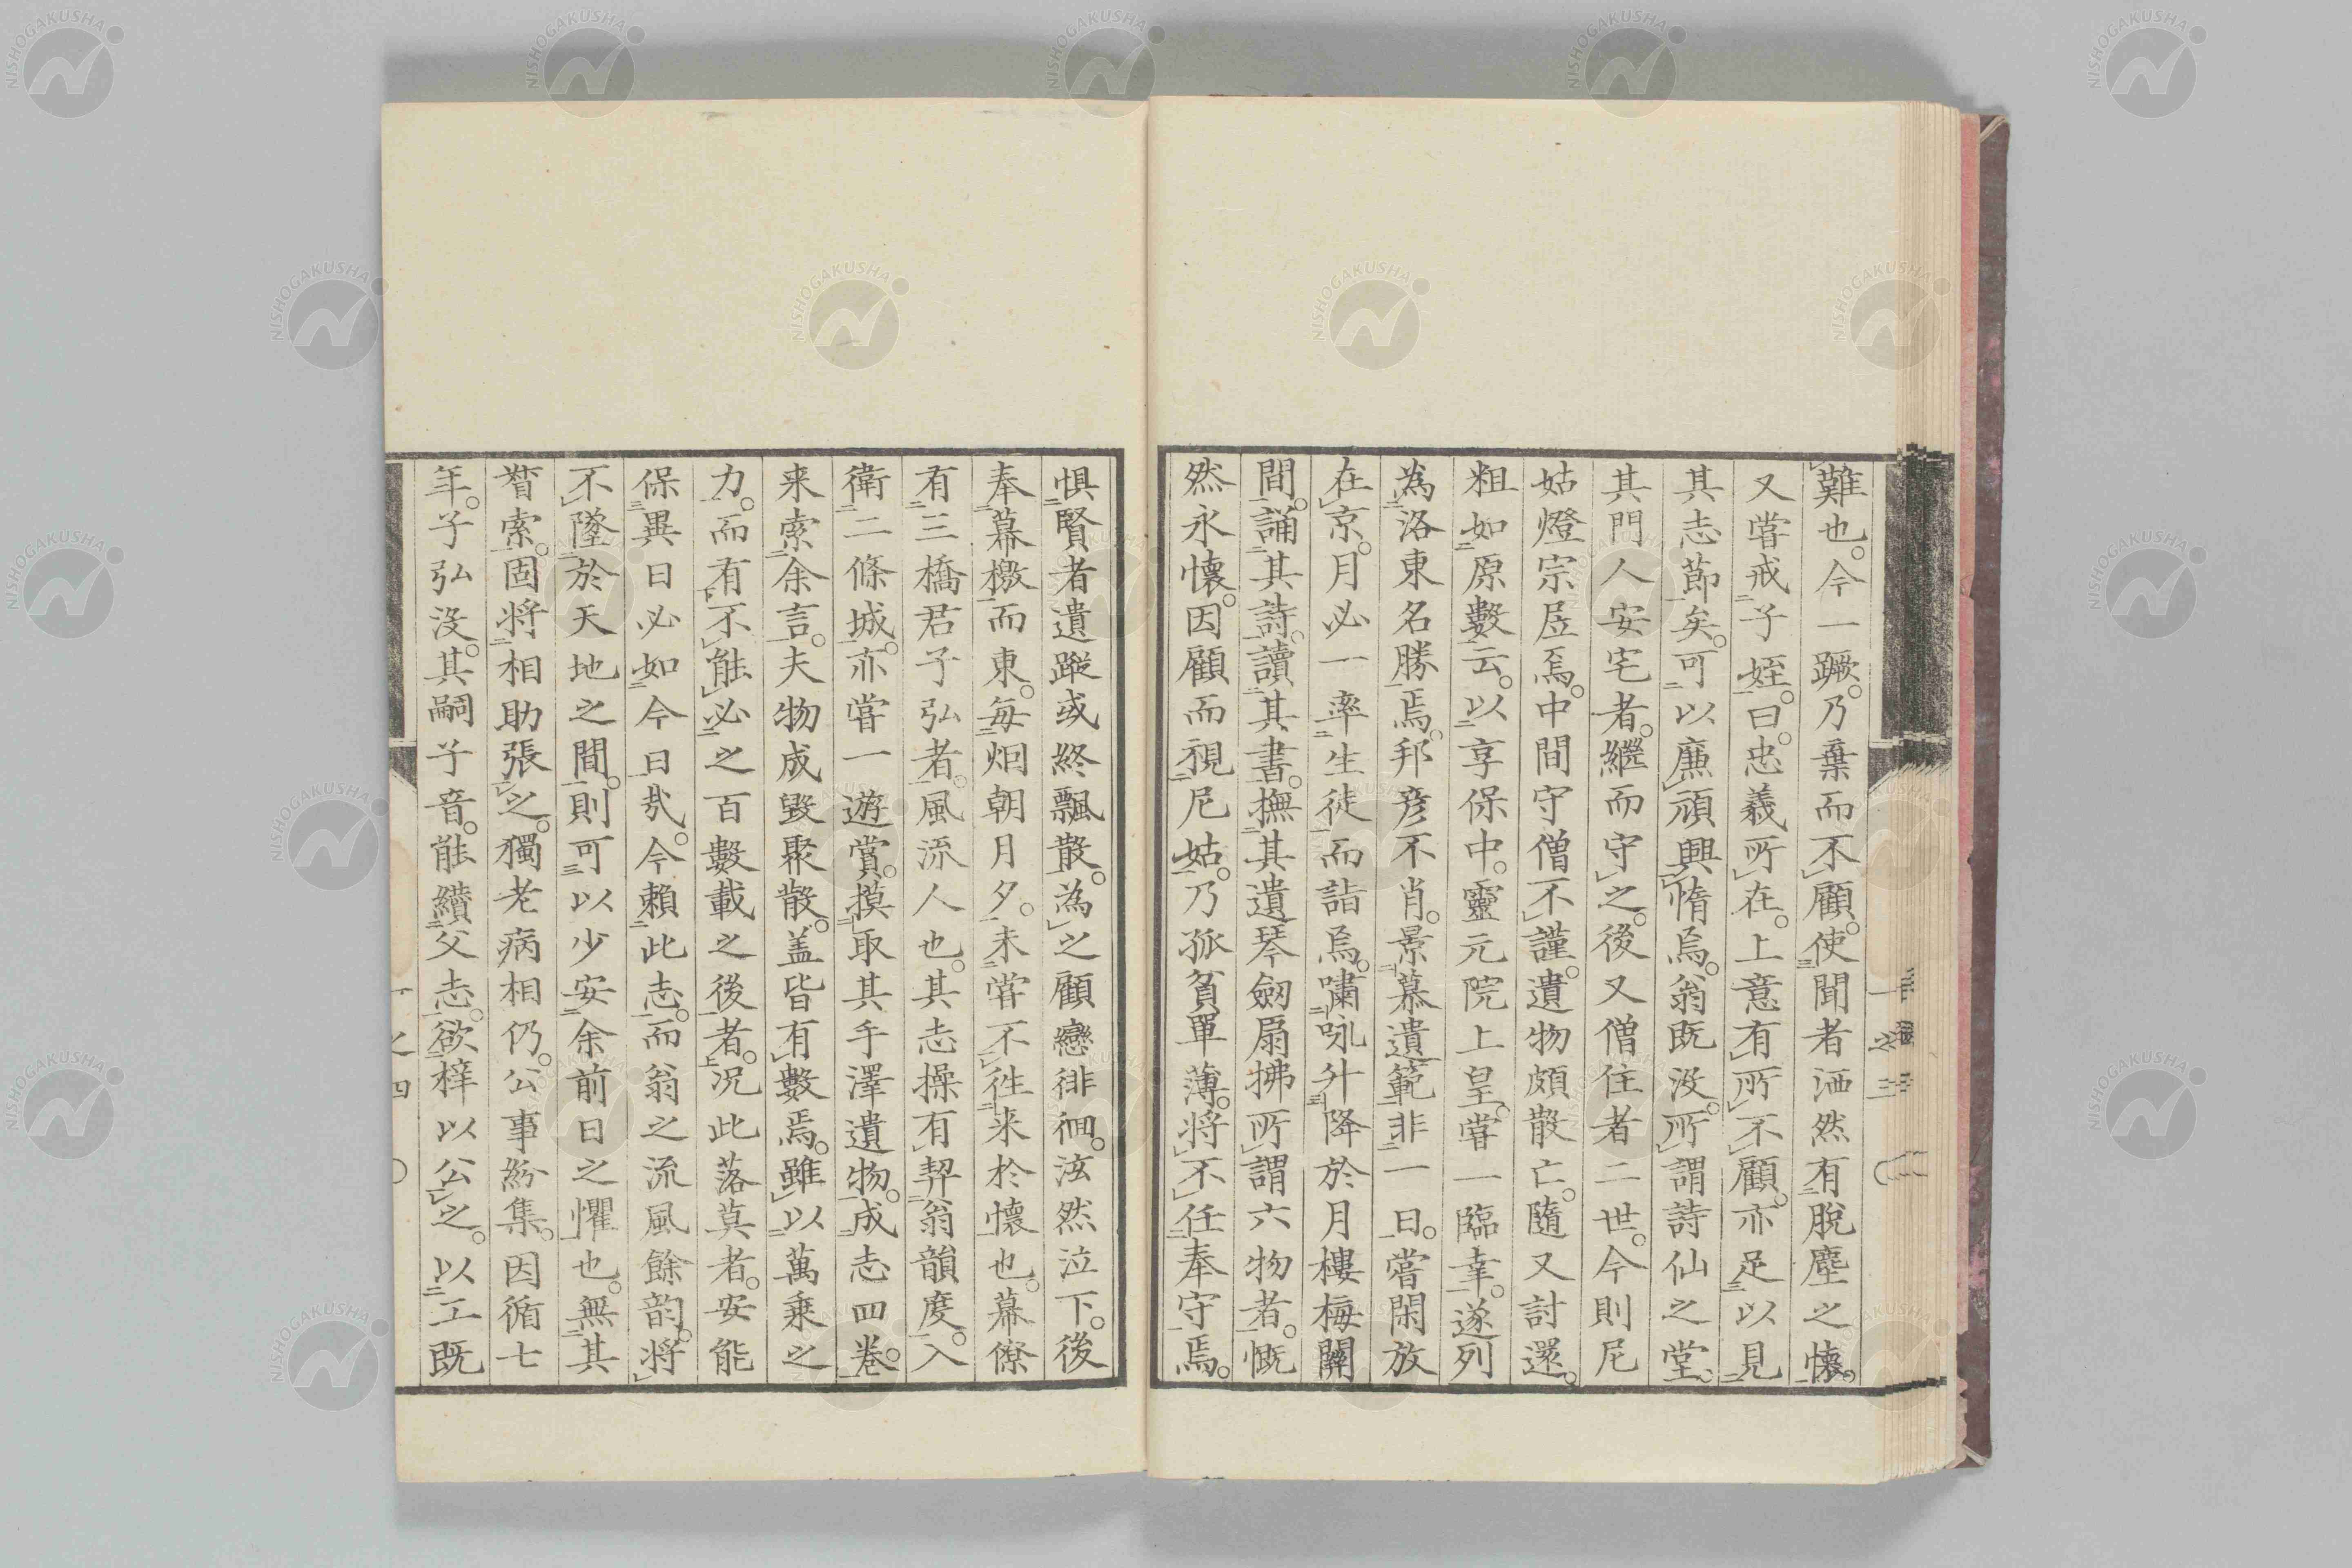 難也。今一蹶。乃棄而不顧。使聞者洒然有脫塵之懷。
又嘗戒子姪。曰。忠義所在。上意有所不顧。亦足以見
其志節矣。可以廉頑興惰焉。翁既沒。所謂詩仙之堂。
其門人安宅者。繼而守之。後又僧住者二世。今則尼
姑燈宗居焉。中間守僧不謹。遺物頗散亡。隨又討還。
粗如原數云。以享保中。靈元院上皇。嘗一臨幸。遂列
為洛東名勝焉。邦彦不肖。景慕遺範非一日。嘗閑放
在京。月必一率生徒而詣焉。嘯咏升降於月樓梅關
間。誦其詩。讀其書。撫其遺琴劔扇拂所謂六物者。慨
然永懷。因顧而視尼姑。乃孤貧單薄。將不任奉守焉。
惧賢者遺蹤或終飄散。為之顧戀徘徊。泫然泣下。後
奉幕檄而東。每烟朝月夕。未嘗不徃来於懷也。幕僚
有三橋君子弘者。風流人也。其志操有契翁韻度。入
衛二條城。亦嘗一遊賞。摸取其手澤遺物。成志四卷。
来索余言。夫物成毀聚散。盖皆有數焉。雖以萬乗之
力。而有不能必之百數載之後者。况此落莫者。安能
保異日必如今日哉。今賴此志。而翁之流風餘韵。將
不墜於天地之間。則可以少安余前日之懼也。無其
督索。固將相助張之。獨老病相仍。公事紛集。因循七
年。子弘沒。其嗣子音。能纘父志。欲梓以公之。以工既